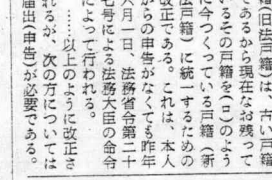 （旧法戸籍）は、古い戸籍
であるから現在なお残って
いるその戸籍を（ロ）のよう
に今つくっている戸籍（新
法戸籍）に統一するための
改正である。これは、本人
からの申告がなくても昨年
六月一日、法務省令第二十
七号による法務大臣の命令
によって行われる。
……以上のように改正さ
れるが、次の方については
届出（申告）が必要である。